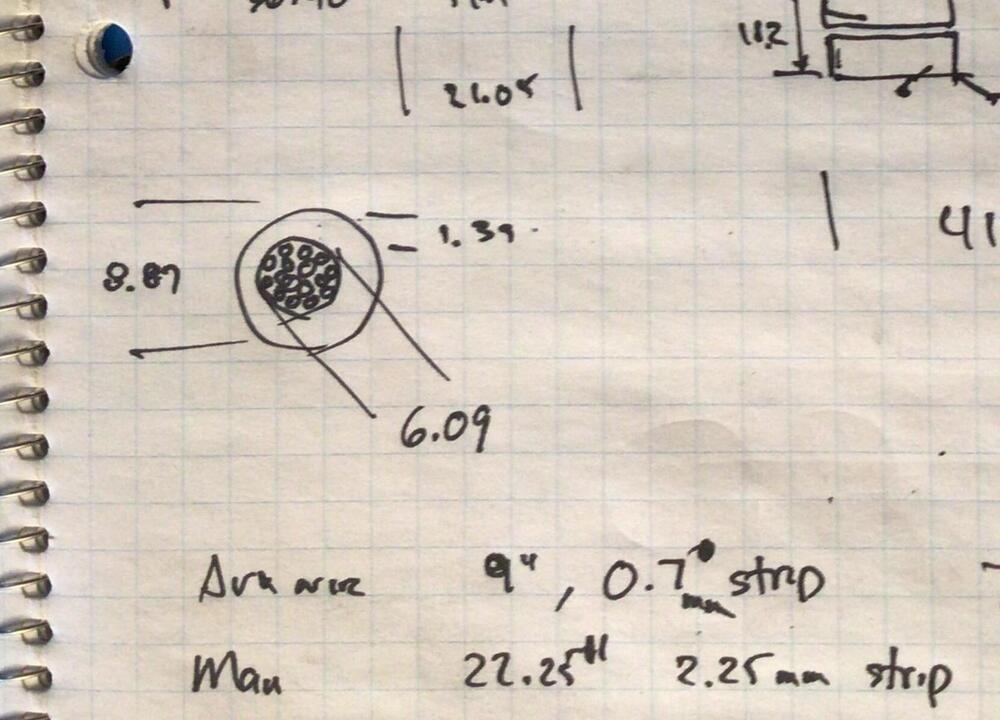 21.05
11.2
41
1.39
8.87
6.09
9", 0.7 mm strip
Man 22.25" 2.25mm strip